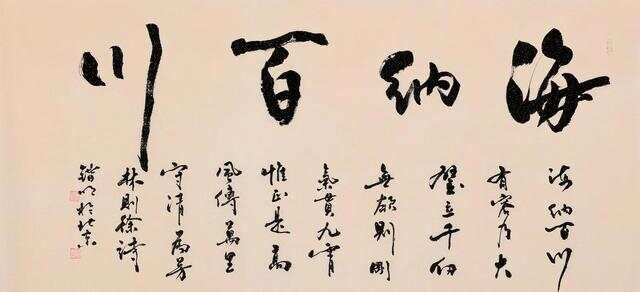 海纳百川
海纳百川
有容乃大
壁立千仞
无欲则刚
气贯九霄
惟正是高
风传万里
守清为芳
林则徐诗
锴明于北京